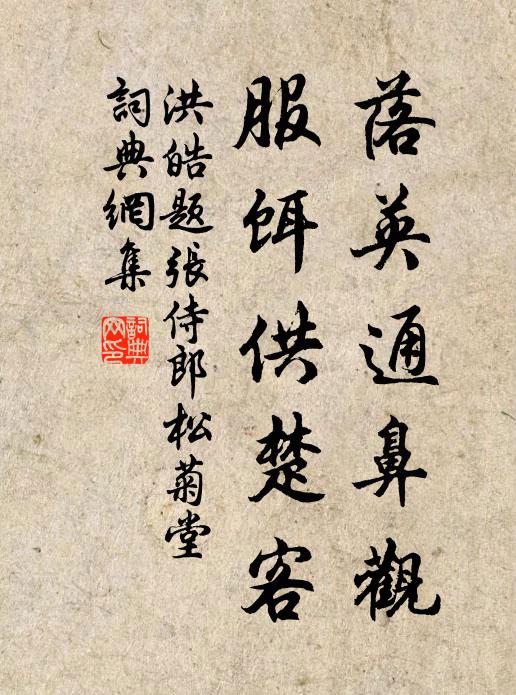 落英通鼻觀
服餌供楚客
洪皓題張侍郎松菊堂
詞典網集
詞典網印